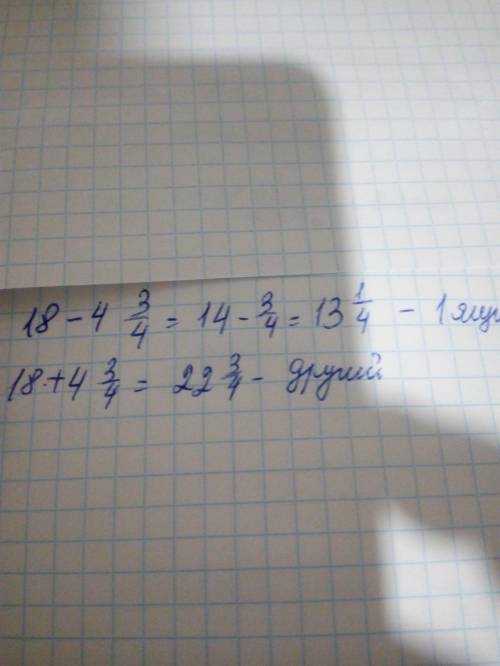 18 - 4 3/4 = 14 - 3/4 = 13 1/4 - 1 ящи
18 + 4 3/4 = 22 3/4 - другий